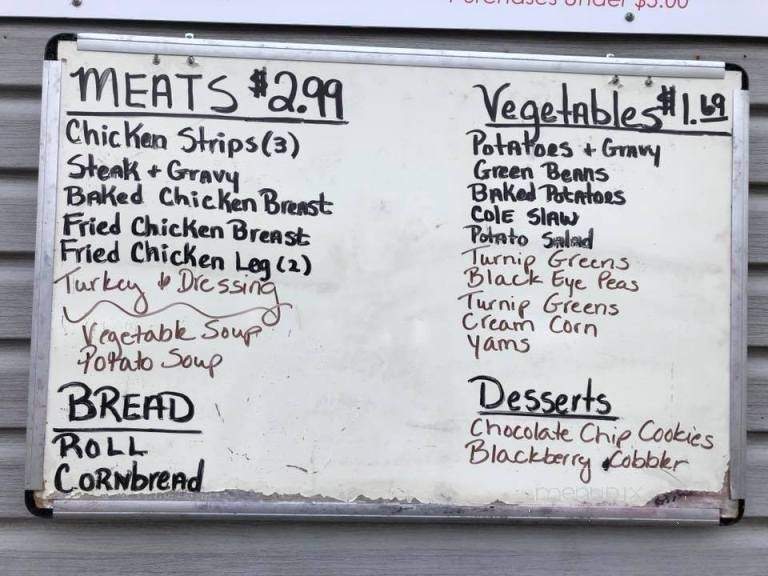 Purchases under $5.00
MEATS $2.99
Chicken Strips (3)
Steak + Gravy
Baked Chicken Breast
Fried Chicken Breast
Fried Chicken Leg (2)
Turkey & Dressing
Vegetable Soup
Potato Soup
BREAD
ROLL
CORNbread
Vegetables $1.69
Potatoes + Gravy
Green Beans
Baked Potatoes
Cole Slaw
Potato Salad
Turnip Greens
Black Eye Peas
Turnip Greens
Cream Corn
Yams
Desserts
Chocolate Chip Cookies
Blackberry Cobbler